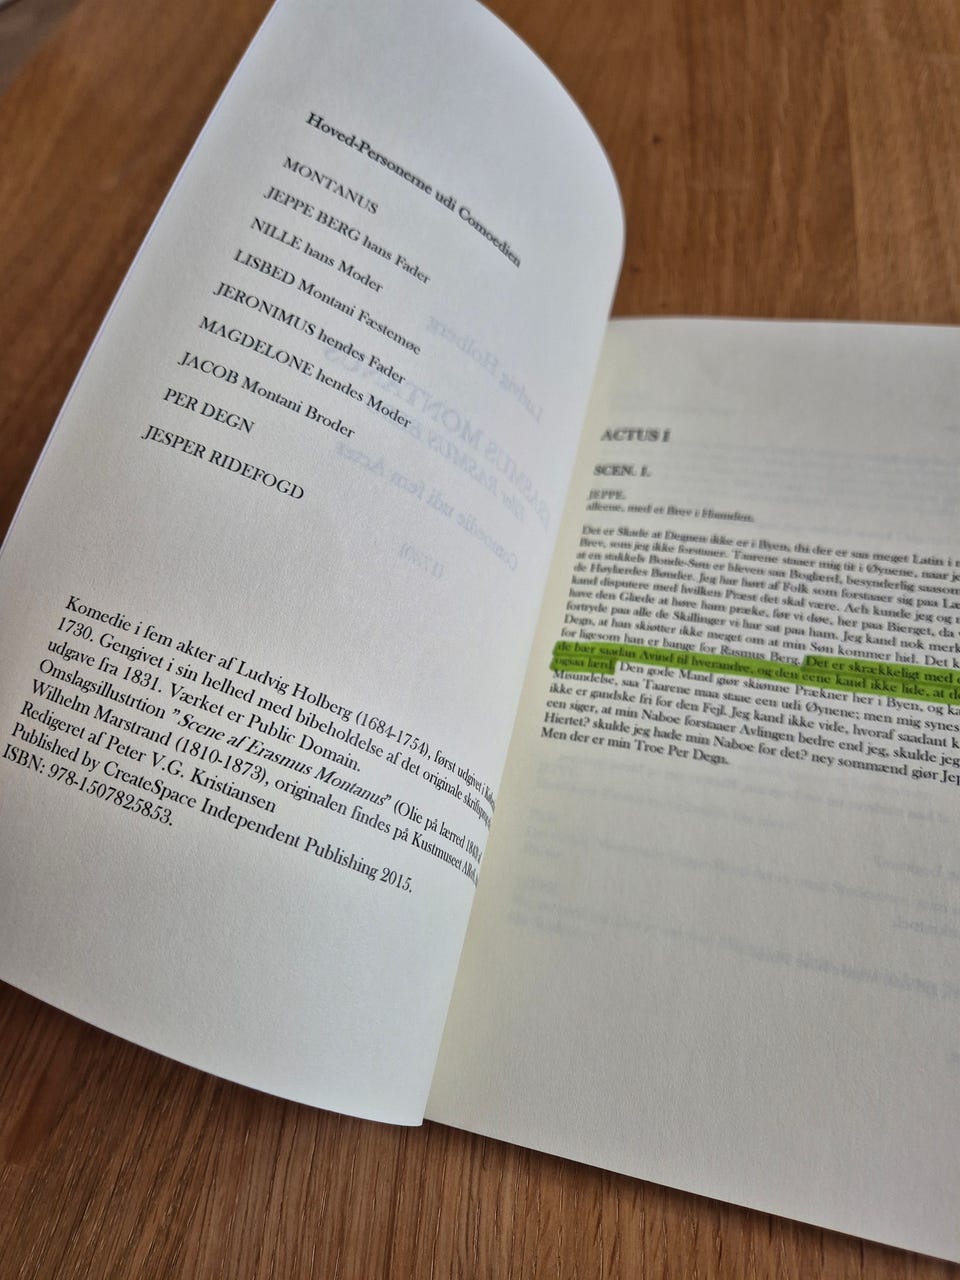 Hoved-Personerne udi Comoedien
MONTANUS
JEPPE BERG hans Fader
NILLE hans Moder
LISBED Montani Fæstemøe
JERONIMUS hendes Fader
MAGDELONE hendes Moder
JACOB Montani Broder
PER DEGN
JESPER RIDEFOGD
Komedie i fem akter af Ludvig Holberg (1684-1754), først udgivet i
1730. Gengivet i sin helhed med bibeholdelse af det originale skriftsprog
udgave fra 1831. Værket er Public Domain.
Omslagsillustrtion "Scene af Erasmus Montanus" (Olie på lærred
Wilhelm Marstrand (1810-1873), originalen findes på Kustmuseet
Redigeret af Peter V.G. Kristiansen
Published by CreateSpace Independent Publishing 2015.
ISBN: 978-1507825853.
ACTUS I
SCEN. I.
JEPPE.
alleene, med et Brev i Haanden.
Det er Skade at Degnen ikke er i Byen, thi der er saa meget Latin i
Brev, som jeg ikke forstaaer. Taarene staaer mig tit i Øynene, naar
at en stakkels Bonde-Søn er bleven saa Boglærd, besynderlig
de Høylærdes Bønder. Jeg har hørt af Folk som forstaaer sig paa
kand disputere med hvilken Præst det skal være. Ach kunde jeg og
have den Glæde at høre ham præke, før vi døe, her paa Bierget, da
fortryde paa alle de Skillinger vi har sat paa ham. Jeg kand nok
Degn, at han skiøtter ikke meget om at min Søn kommer hid. Det
for ligesom han er bange for Rasmus Berg. Det er skrækkeligt med
de bær saadan Avind til hverandre, og den eene kand ikke lide, at
ogsaa lærd. Den gode Mand giør skiønne Prækner her i Byen, og
Misundelse, saa Taarene maa staae een udi Øynene; men mig synes
ikke er gandske fri for den Fejl. Jeg kand ikke vide, hvoraf saadant
een siger, at min Naboe forstaaer Avlingen bedre end jeg, skulde
Hiertet? skulde jeg hade min Naboe for det? ney sommænd giør
Men der er min Troe Per Degn.